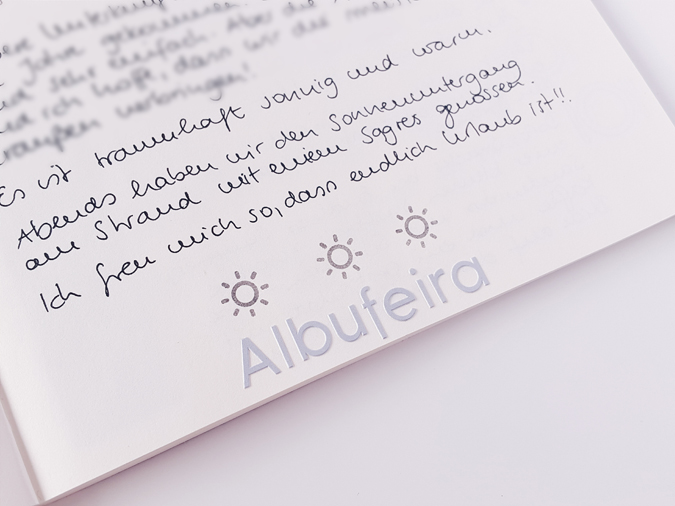 Jahre gekommen. Aber die
und sehr einfach.
und ich hoffe, dass wir die
draußen verbringen!
Es ist traumhaft sonnig und warm.
Abends haben wir den Sonnenuntergang
am Strand mit einem Sagres genossen.
Ich freu mich so, dass endlich Urlaub ist!!
Albufeira